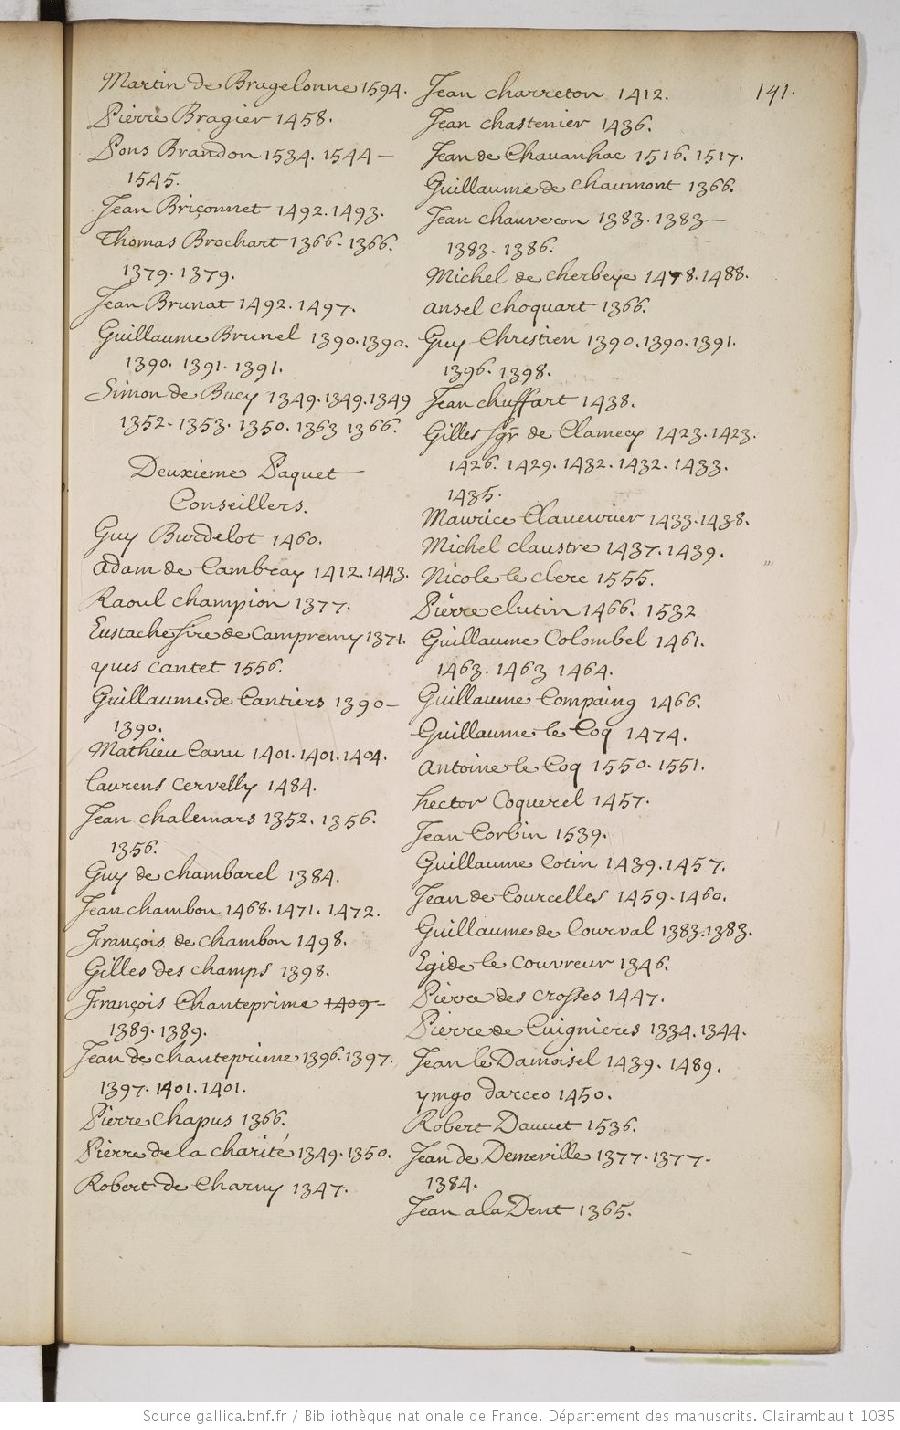 Martin de Bragelonne 1594.
Pierre Bragier 1458.
Pons Brandon 1534. 1544 –
1545.
Jean Briçonnet 1492. 1493.
Thomas Brochart 1366. 1366.
1379. 1379.
Jean Brunat 1492. 1497.
Guillaume Brunel 1390. 1390.
1390. 1391. 1391.
Simon de Bucy 1349. 1349. 1349
1352. 1353. 1350. 1363 1366.
Deuxieme Paquet
Conseillers.
Guy Burdelot 1460.
adam de Cambray 1412. 1443.
Raoul champion 1377.
Eustache sire de Campremy 1371.
yves cantet 1556.
Guillaume de Cantiers 1390 –
1390.
Mathieu Canu 1401. 1401. 1404.
laurens cervelly 1484.
Jean chalemars 1352. 1356.
1356.
Guy de chambarel 1384.
Jean chambon 1468. 1471. 1472.
François de chambon 1498.
Gilles des champs 1398.
François Chanteprime 1409 –
1389. 1389.
Jean de chanteprime 1396. 1397.
1397. 1401. 1401.
Pierre chapus 1366.
Pierre de la charité 1349. 1350.
Robert de Charny 1347.
141.
Jean charreton 1412.
Jean chastenier 1436.
Jean de Chavanhac 1516. 1517.
Guillaume de chaumont 1366.
Jean chauveron 1383. 1383 –
1383. 1386.
Michel de cherbeye 1478. 1488.
ansel choquart 1366.
Guy Christien 1390. 1390. 1391.
1396. 1398.
Jean chuffart 1438.
Gilles sgr de Clamecy 1423. 1423.
1426. 1429. 1432. 1432. 1433.
1435.
Maurice Claverier 1433. 1438.
Michel claustre 1437. 1439.
Nicole le clerc 1555.
Pierre clutin 1466. 1532
Guillaume Colombel 1461.
1463. 1463 1464.
Guillaume Compaing 1466.
Guillaume le Coq 1474.
Antoine le Coq 1550. 1551.
hector Coquerel 1457.
Jean Corbin 1539.
Guillaume Cotin 1439. 1457.
Jean de Courcelles 1459. 1460.
Guillaume de Courval 1383. 1383.
Egide le Couvreur 1346.
Pierre des crosses 1447.
Pierre de Cuignieres 1334. 1344.
Jean le Damoisel 1439. 1489.
ymgo darceo 1450.
Robert Dauvet 1536.
Jean de Demeville 1377. 1377.
1384.
Jean a la Dent 1365.
Source gallica.bnf.fr / Bibliothèque nationale de France. Département des manuscrits. Clairambault 1035